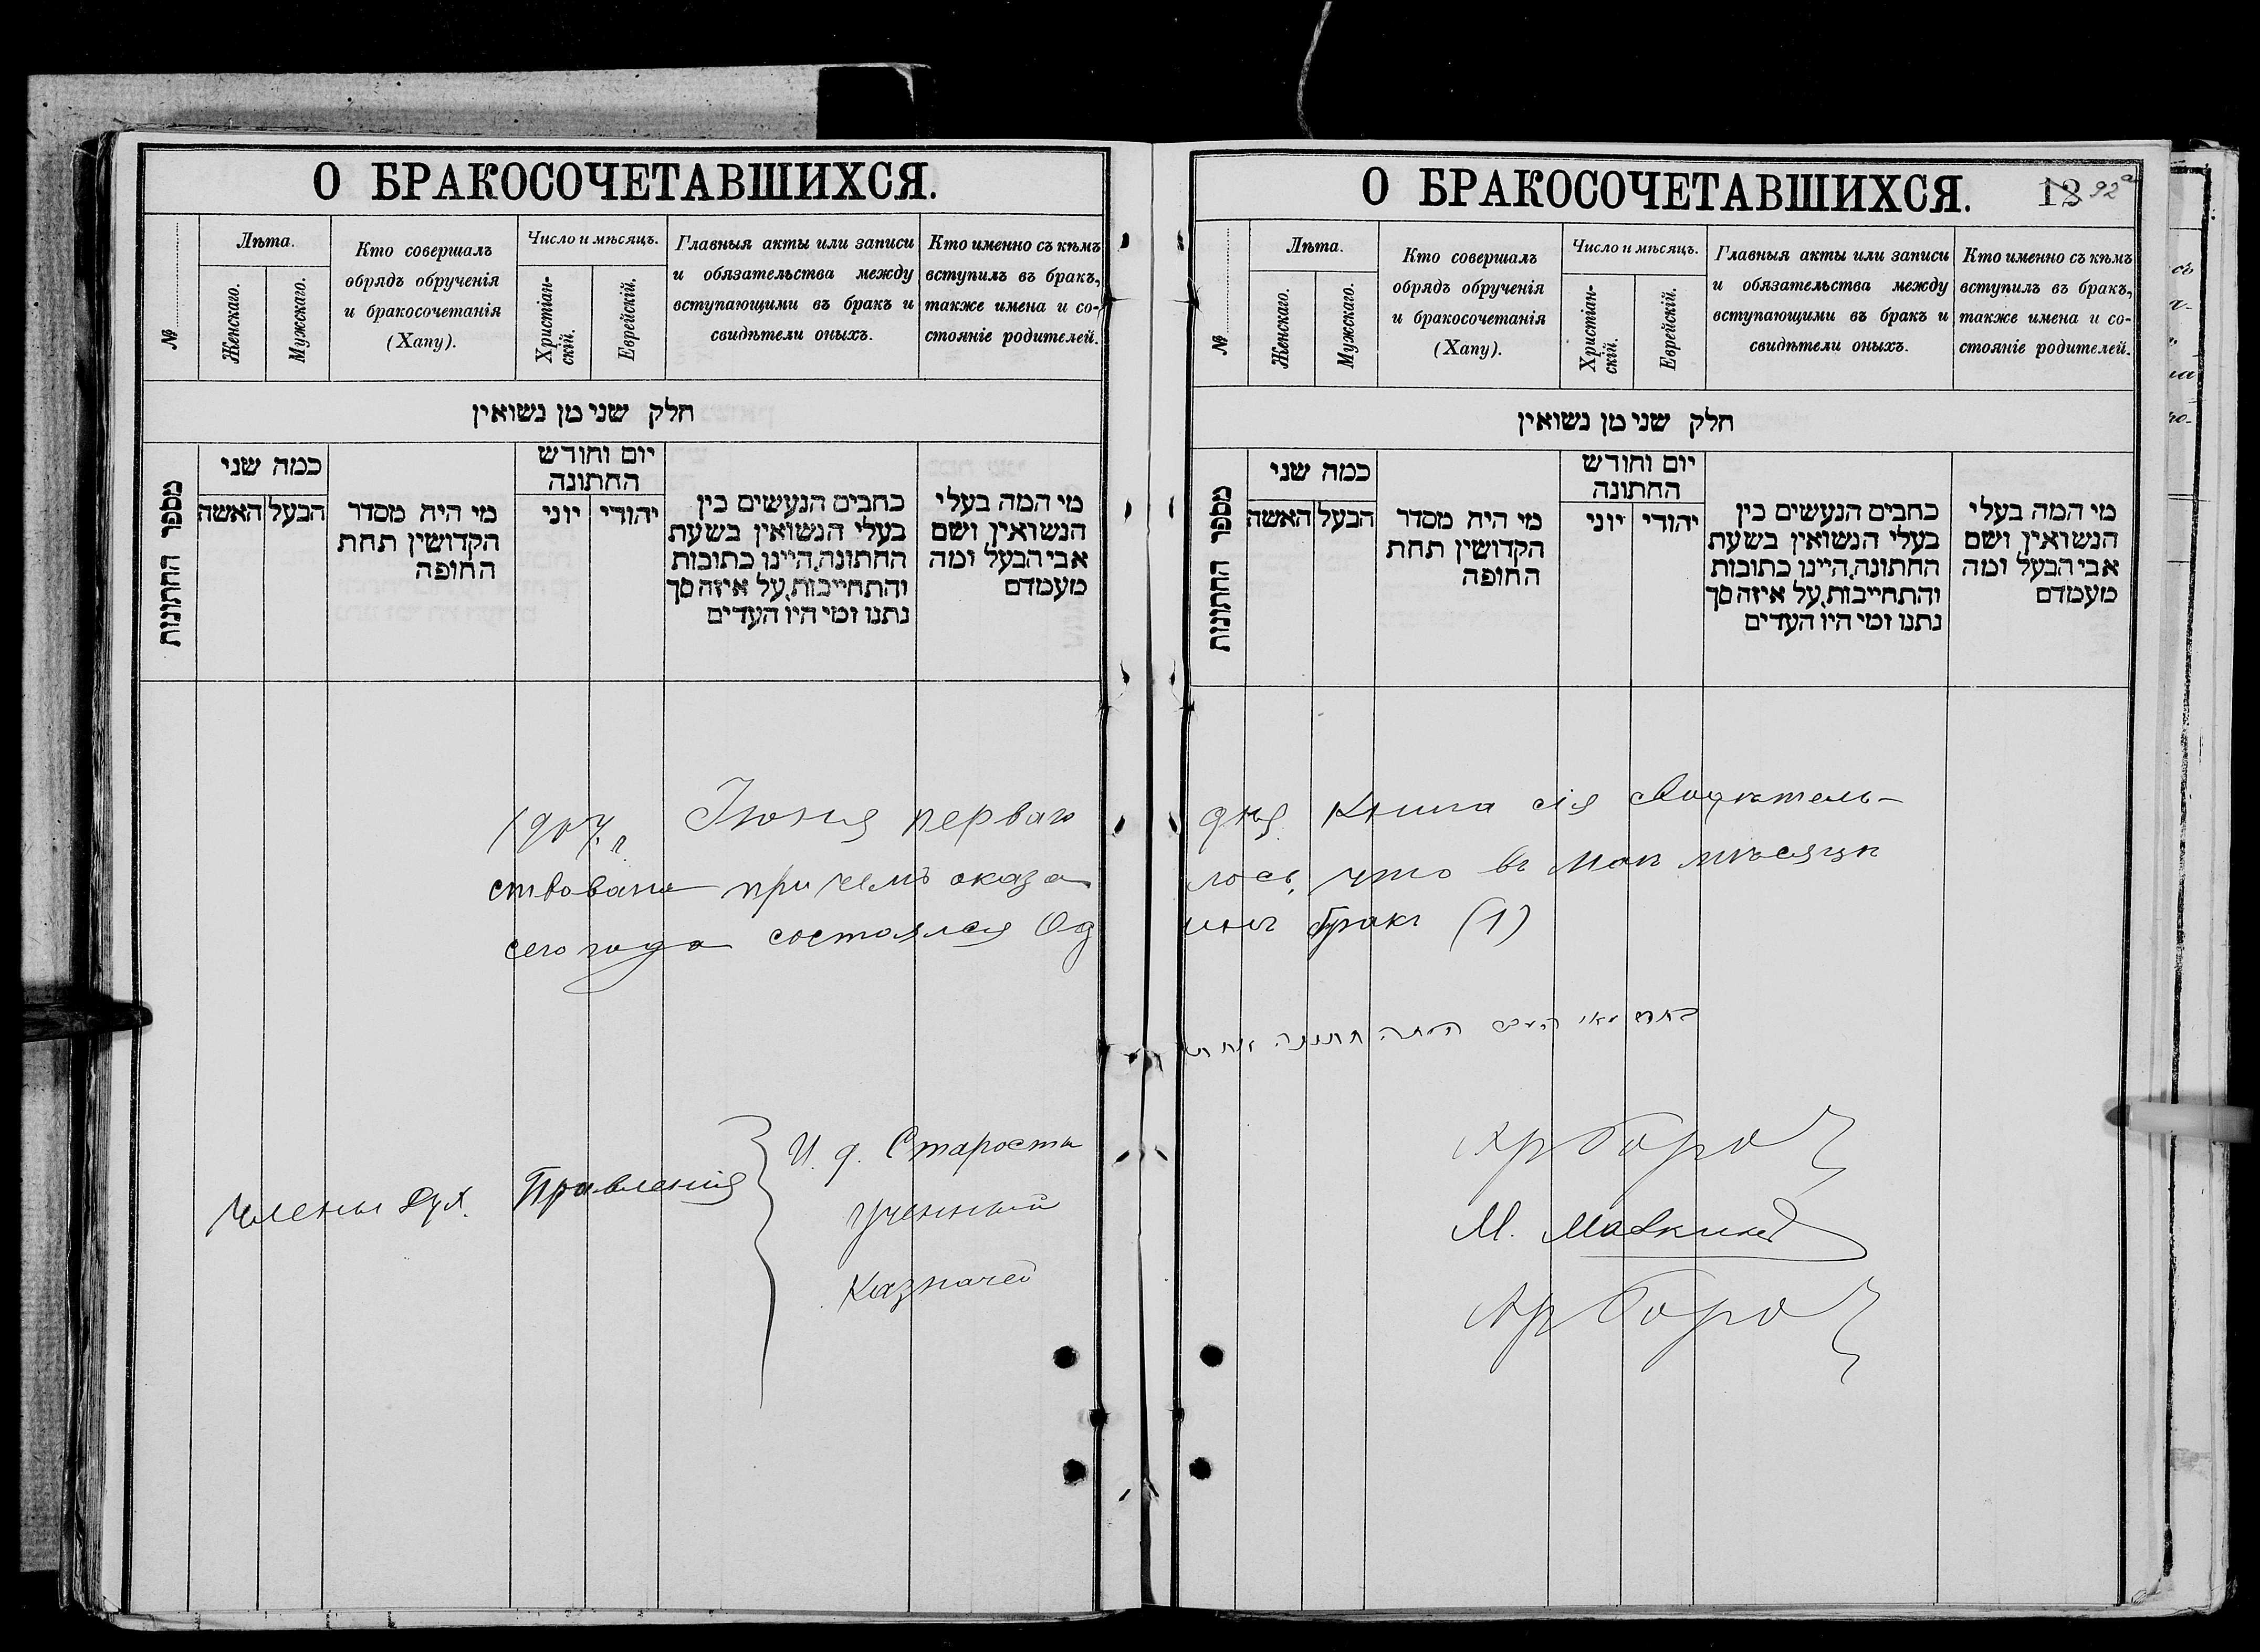 О БРАКОСОЧЕТАВШИХСЯ.
№
Лѣта.
Женскаго.
Мужскаго.
Кто совершалъ
обрядъ обрученія
и бракосочетанія
(Хапу).
Число и мѣсяцъ.
Христіан-
скій.
Еврейскій.
Главныя акты или записи
и обязательства между
вступающими въ бракъ и
свидѣтели оныхъ.
Кто именно съ кѣмъ
вступилъ въ бракъ,
также имена и со-
стояніе родителей.
חלק שני מן נשואין
מספר החתונות
כמה שני
האשה
הבעל
מי היה מסדר
הקדושין תחת
החופה
יום וחודש
החתונה
יוני
יהודי
כתבים הנעשים בין
בעלי הנשואין בשעת
החתונה, היינו כתובות
והתחייבות, על איזה סך
נתנו ומי היו העדים
מי המה בעלי
הנשואין ושם
אבי הבעל ומה
מעמדם
О БРАКОСОЧЕТАВШИХСЯ.
12 92а
№
Лѣта.
Женскаго.
Мужскаго.
Кто совершалъ
обрядъ обрученія
и бракосочетанія
(Хапу).
Число и мѣсяцъ.
Христіан-
скій.
Еврейскій.
Главныя акты или записи
и обязательства между
вступающими въ бракъ и
свидѣтели оныхъ.
Кто именно съ кѣмъ
вступилъ въ бракъ,
также имена и со-
стояніе родителей.
חלק שני מן נשואין
מספר החתונות
כמה שני
האשה
הבעל
מי היה מסדר
הקדושין תחת
החופה
יום וחודש
החתונה
יוני
יהודי
כתבים הנעשים בין
בעלי הנשואין בשעת
החתונה, היינו כתובות
והתחייבות, על איזה סך
נתנו ומי היו העדים
מי המה בעלי
הנשואין ושם
אבי הבעל ומה
מעמדם
1907 г. Іюня перваго дня Книга сія свидѣтель-
ствована причемъ оказа лось, что въ маѣ мѣсяцѣ
сего года состоялся Од инъ бракъ (1)
מאי היתה חתונה אחת
Члены Дух. Правленія
И. д. Старосты
Ученный М.
Казначей